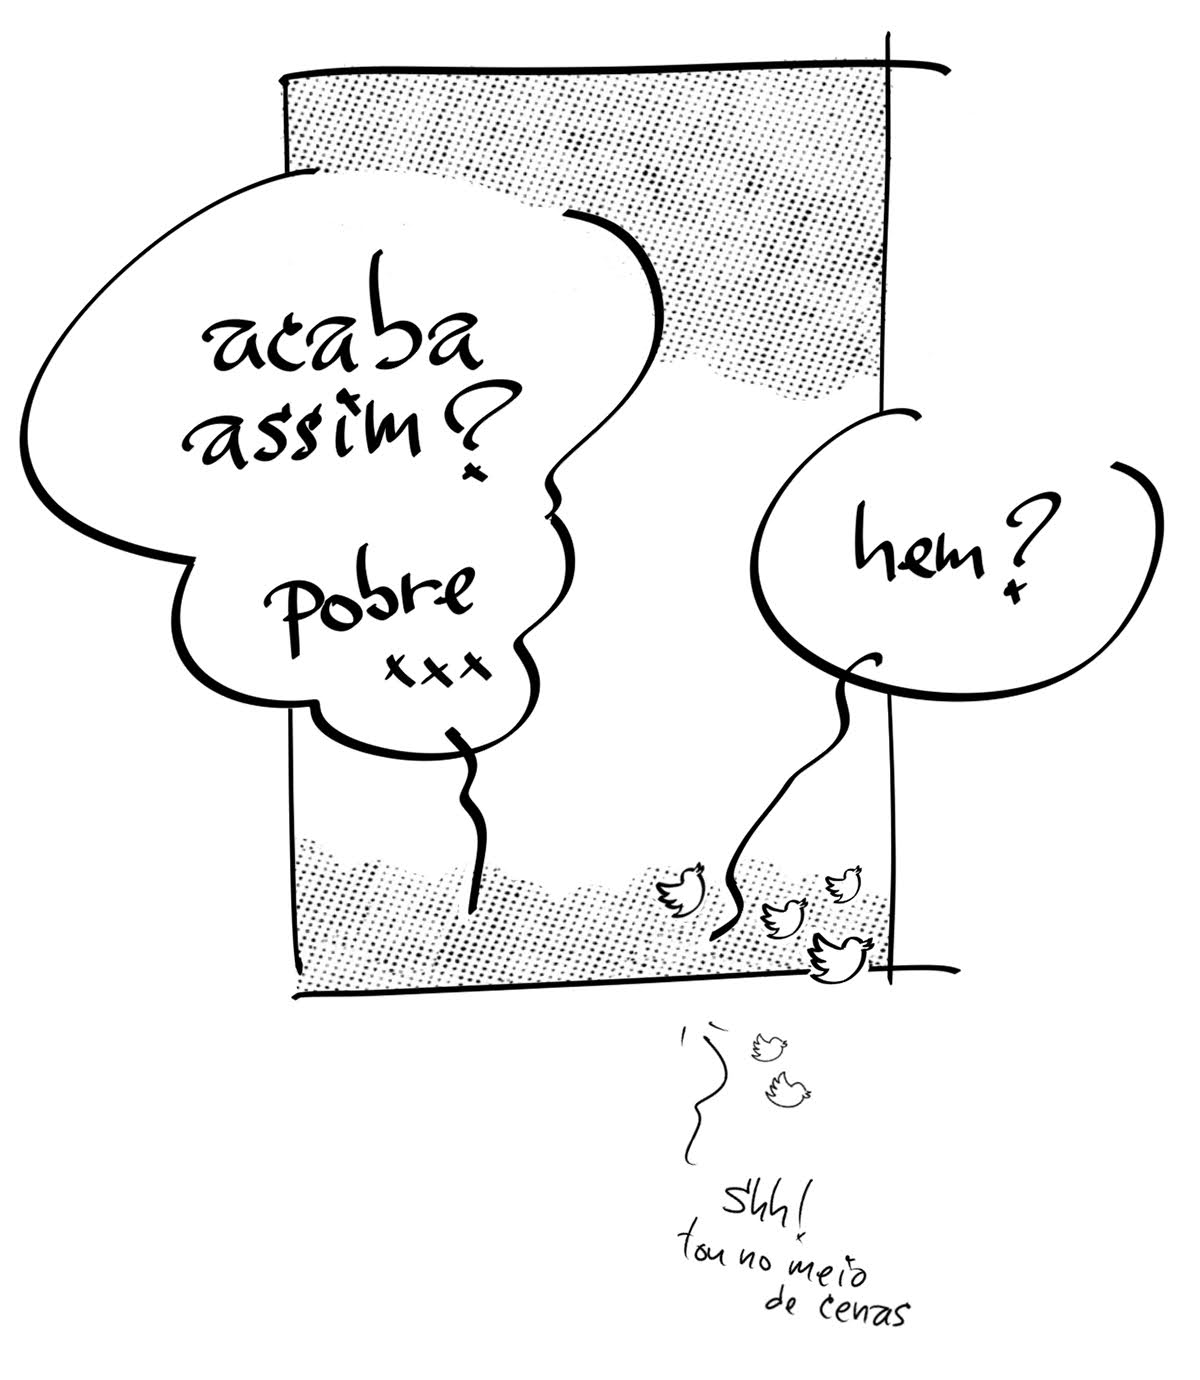 acaba
assim?
pobre
xxx
hem?
shh!
tou no meio
de cenas